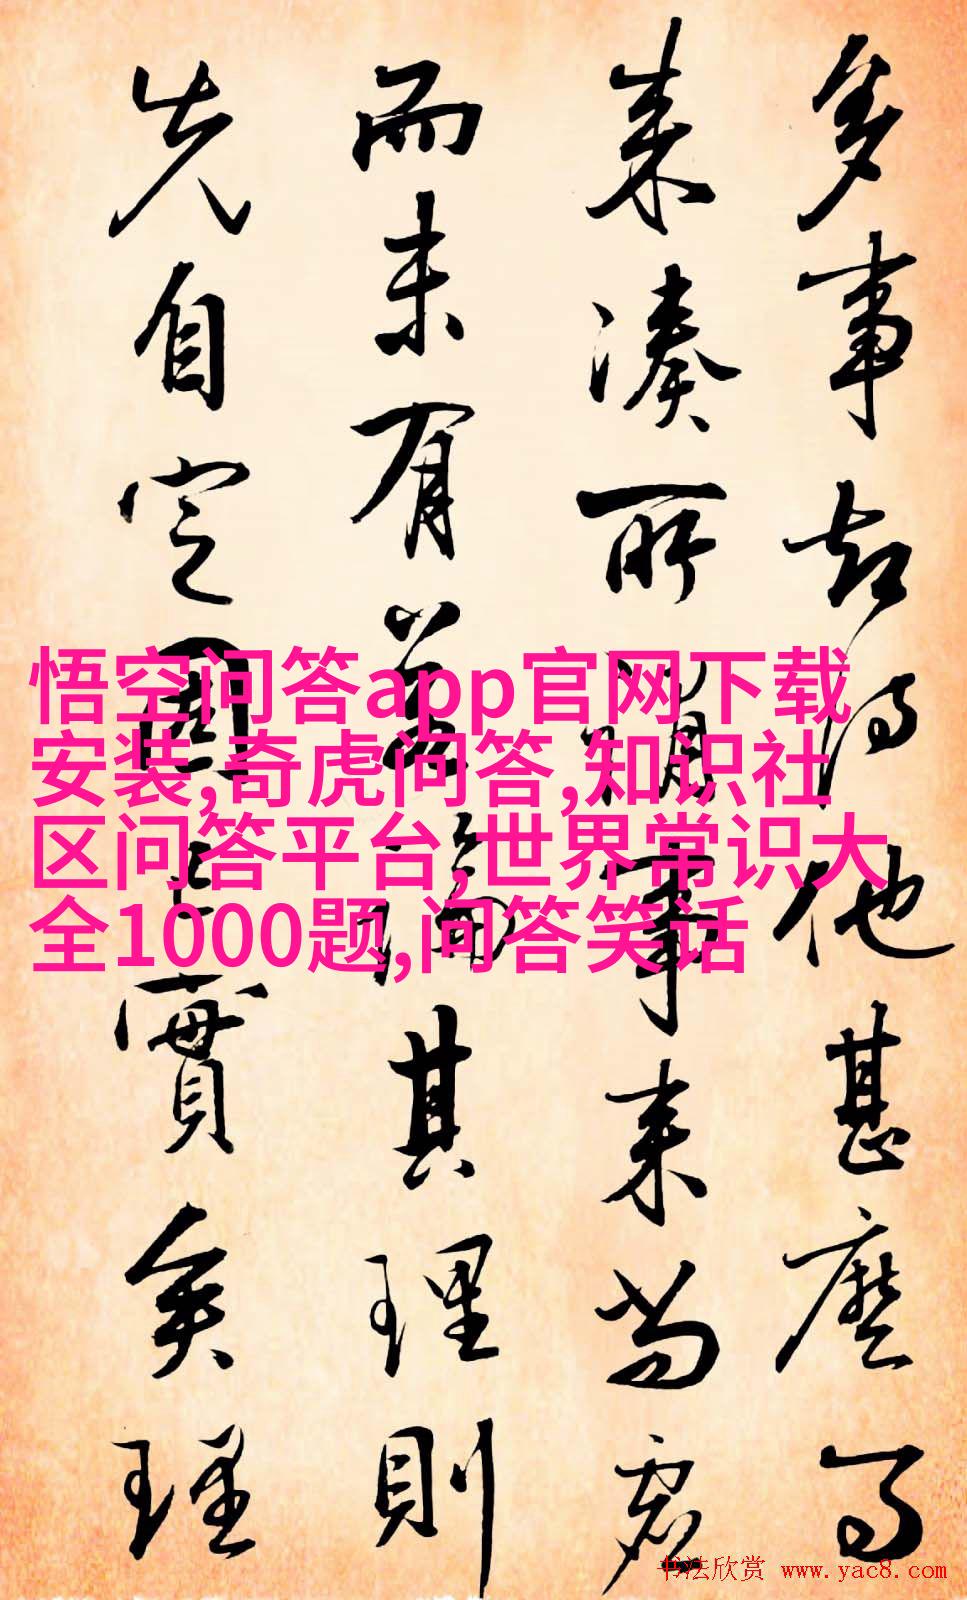 多事却待他甚麽了
来凑所谓事事来当君
而未有若論其理則
先自定固已實矣理
悟空问答app官网下载
安装,奇虎问答,知识社
区问答平台,世界常识大
全1000题,问答笑话
书法欣赏 www.yac8.com